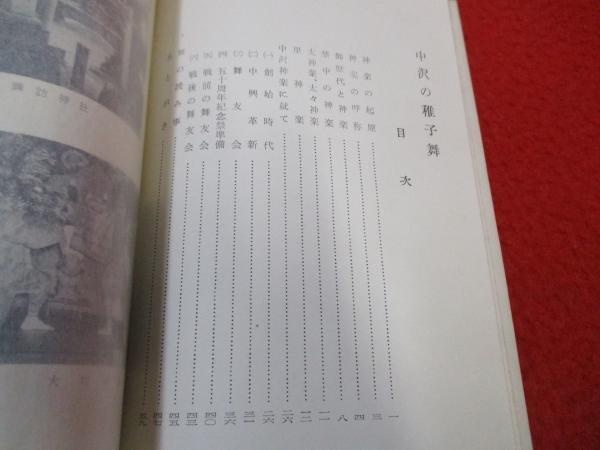 中沢の稚子舞
目次
神楽の起原……一
神楽の呼称……三
御歴代と神楽……四
禁中の神楽……八
太神楽、太々神楽……一一
里神楽……一二
中沢神楽に就て……二六
㈠創始時代……二六
㈡中興革新……三一
㈢舞友会……三六
㈣五十周年紀念祭準備……四〇
㈤戦前の舞友会……四三
㈥戦後の舞友会……四五
舞の読み事……四七
あとがき……五九
諏訪神社
大